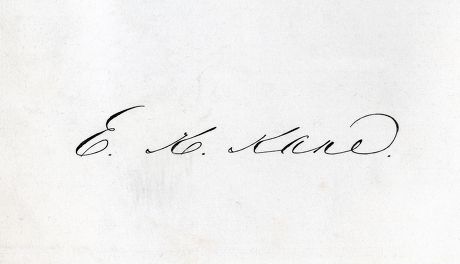 E. K. Kane.